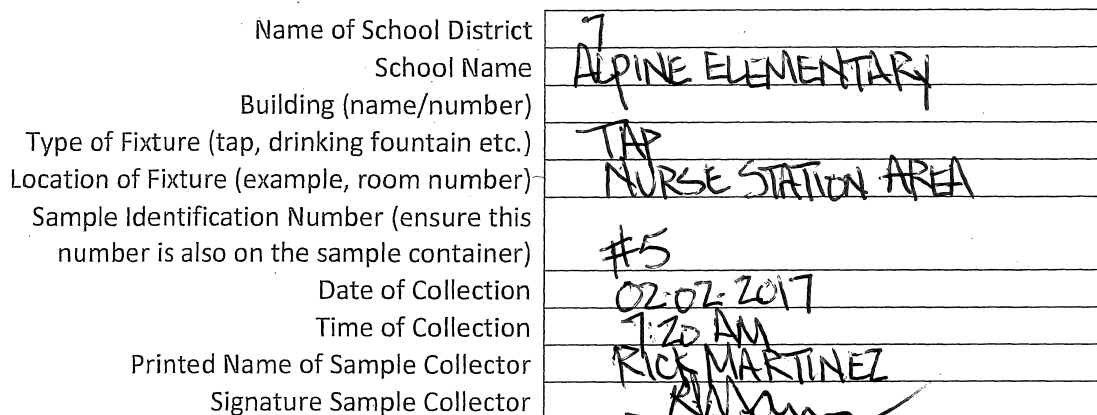 Name of School District 7
School Name ALPINE ELEMENTARY
Building (name/number)
Type of Fixture (tap, drinking fountain etc.) TAP
Location of Fixture (example, room number) NURSE STATION AREA
Sample Identification Number (ensure this
number is also on the sample container) #5
Date of Collection 02-02-2017
Time of Collection 7:20 AM
Printed Name of Sample Collector RICK MARTINEZ
Signature Sample Collector